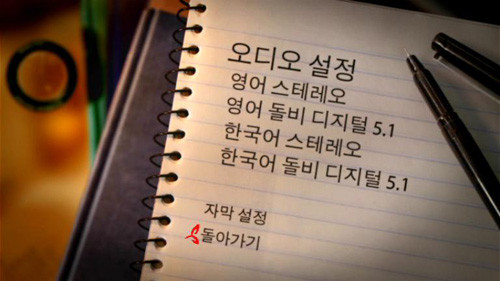 오디오 설정
영어 스테레오
영어 돌비 디지털 5.1
한국어 스테레오
한국어 돌비 디지털 5.1
자막 설정
돌아가기